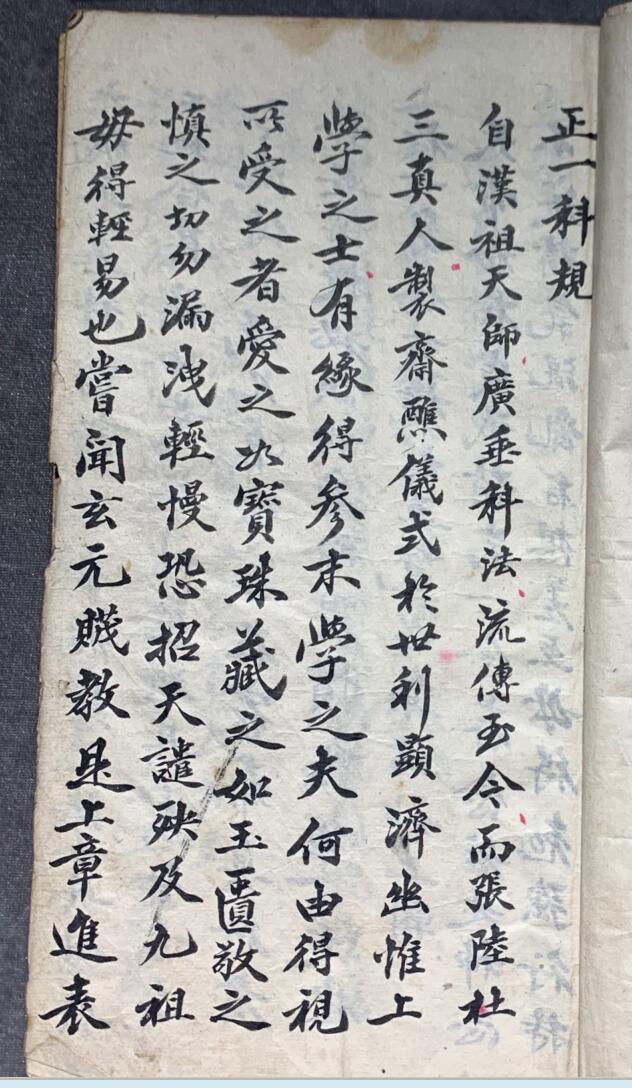 正一科規
自漢祖天師廣垂科法流傳至今而張陸杜
三真人製齋醮儀式於世利顯濟幽惟上
學之士有緣得參末學之夫何由得視
所受之者愛之如寶珠藏之如玉匱敬之
慎之切勿漏洩輕慢恐招天譴殃及九祖
毋得輕易也嘗聞玄元賤教是上章進表